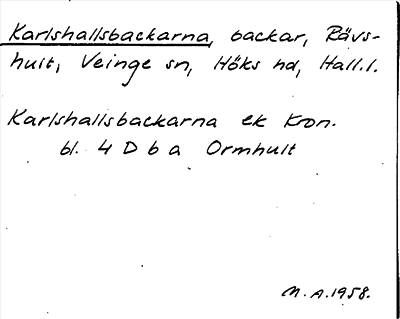 Karlshallsbackarna, backar, Rävs-
hult, Veinge sn, Höks hd, Hall.l.
Karlshallsbackarna ek kron.
bl. 4 D b a Ormhult
M.A. 1958.